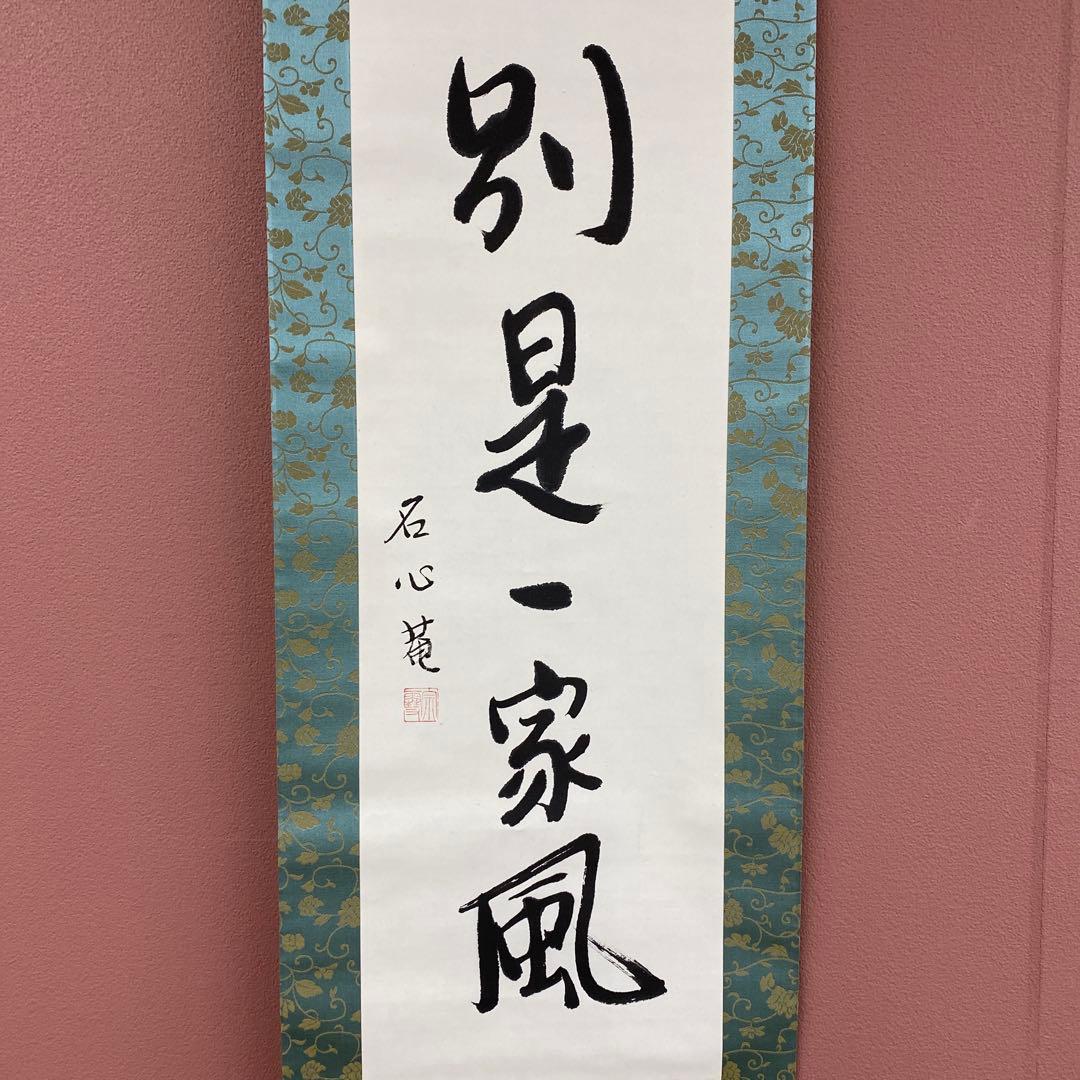 別是一家風
石心菴